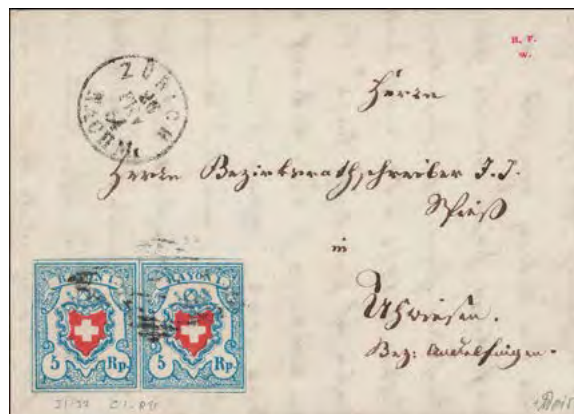 R. F.
W.
ZÜRICH
VORM.
Herrn
Herrn Bezirksrathschreiber J. J.
Spieß
in
Uhwiesen.
Bez: Andelfingen.
RAYON
RAYON
5 Rp.
5 Rp.